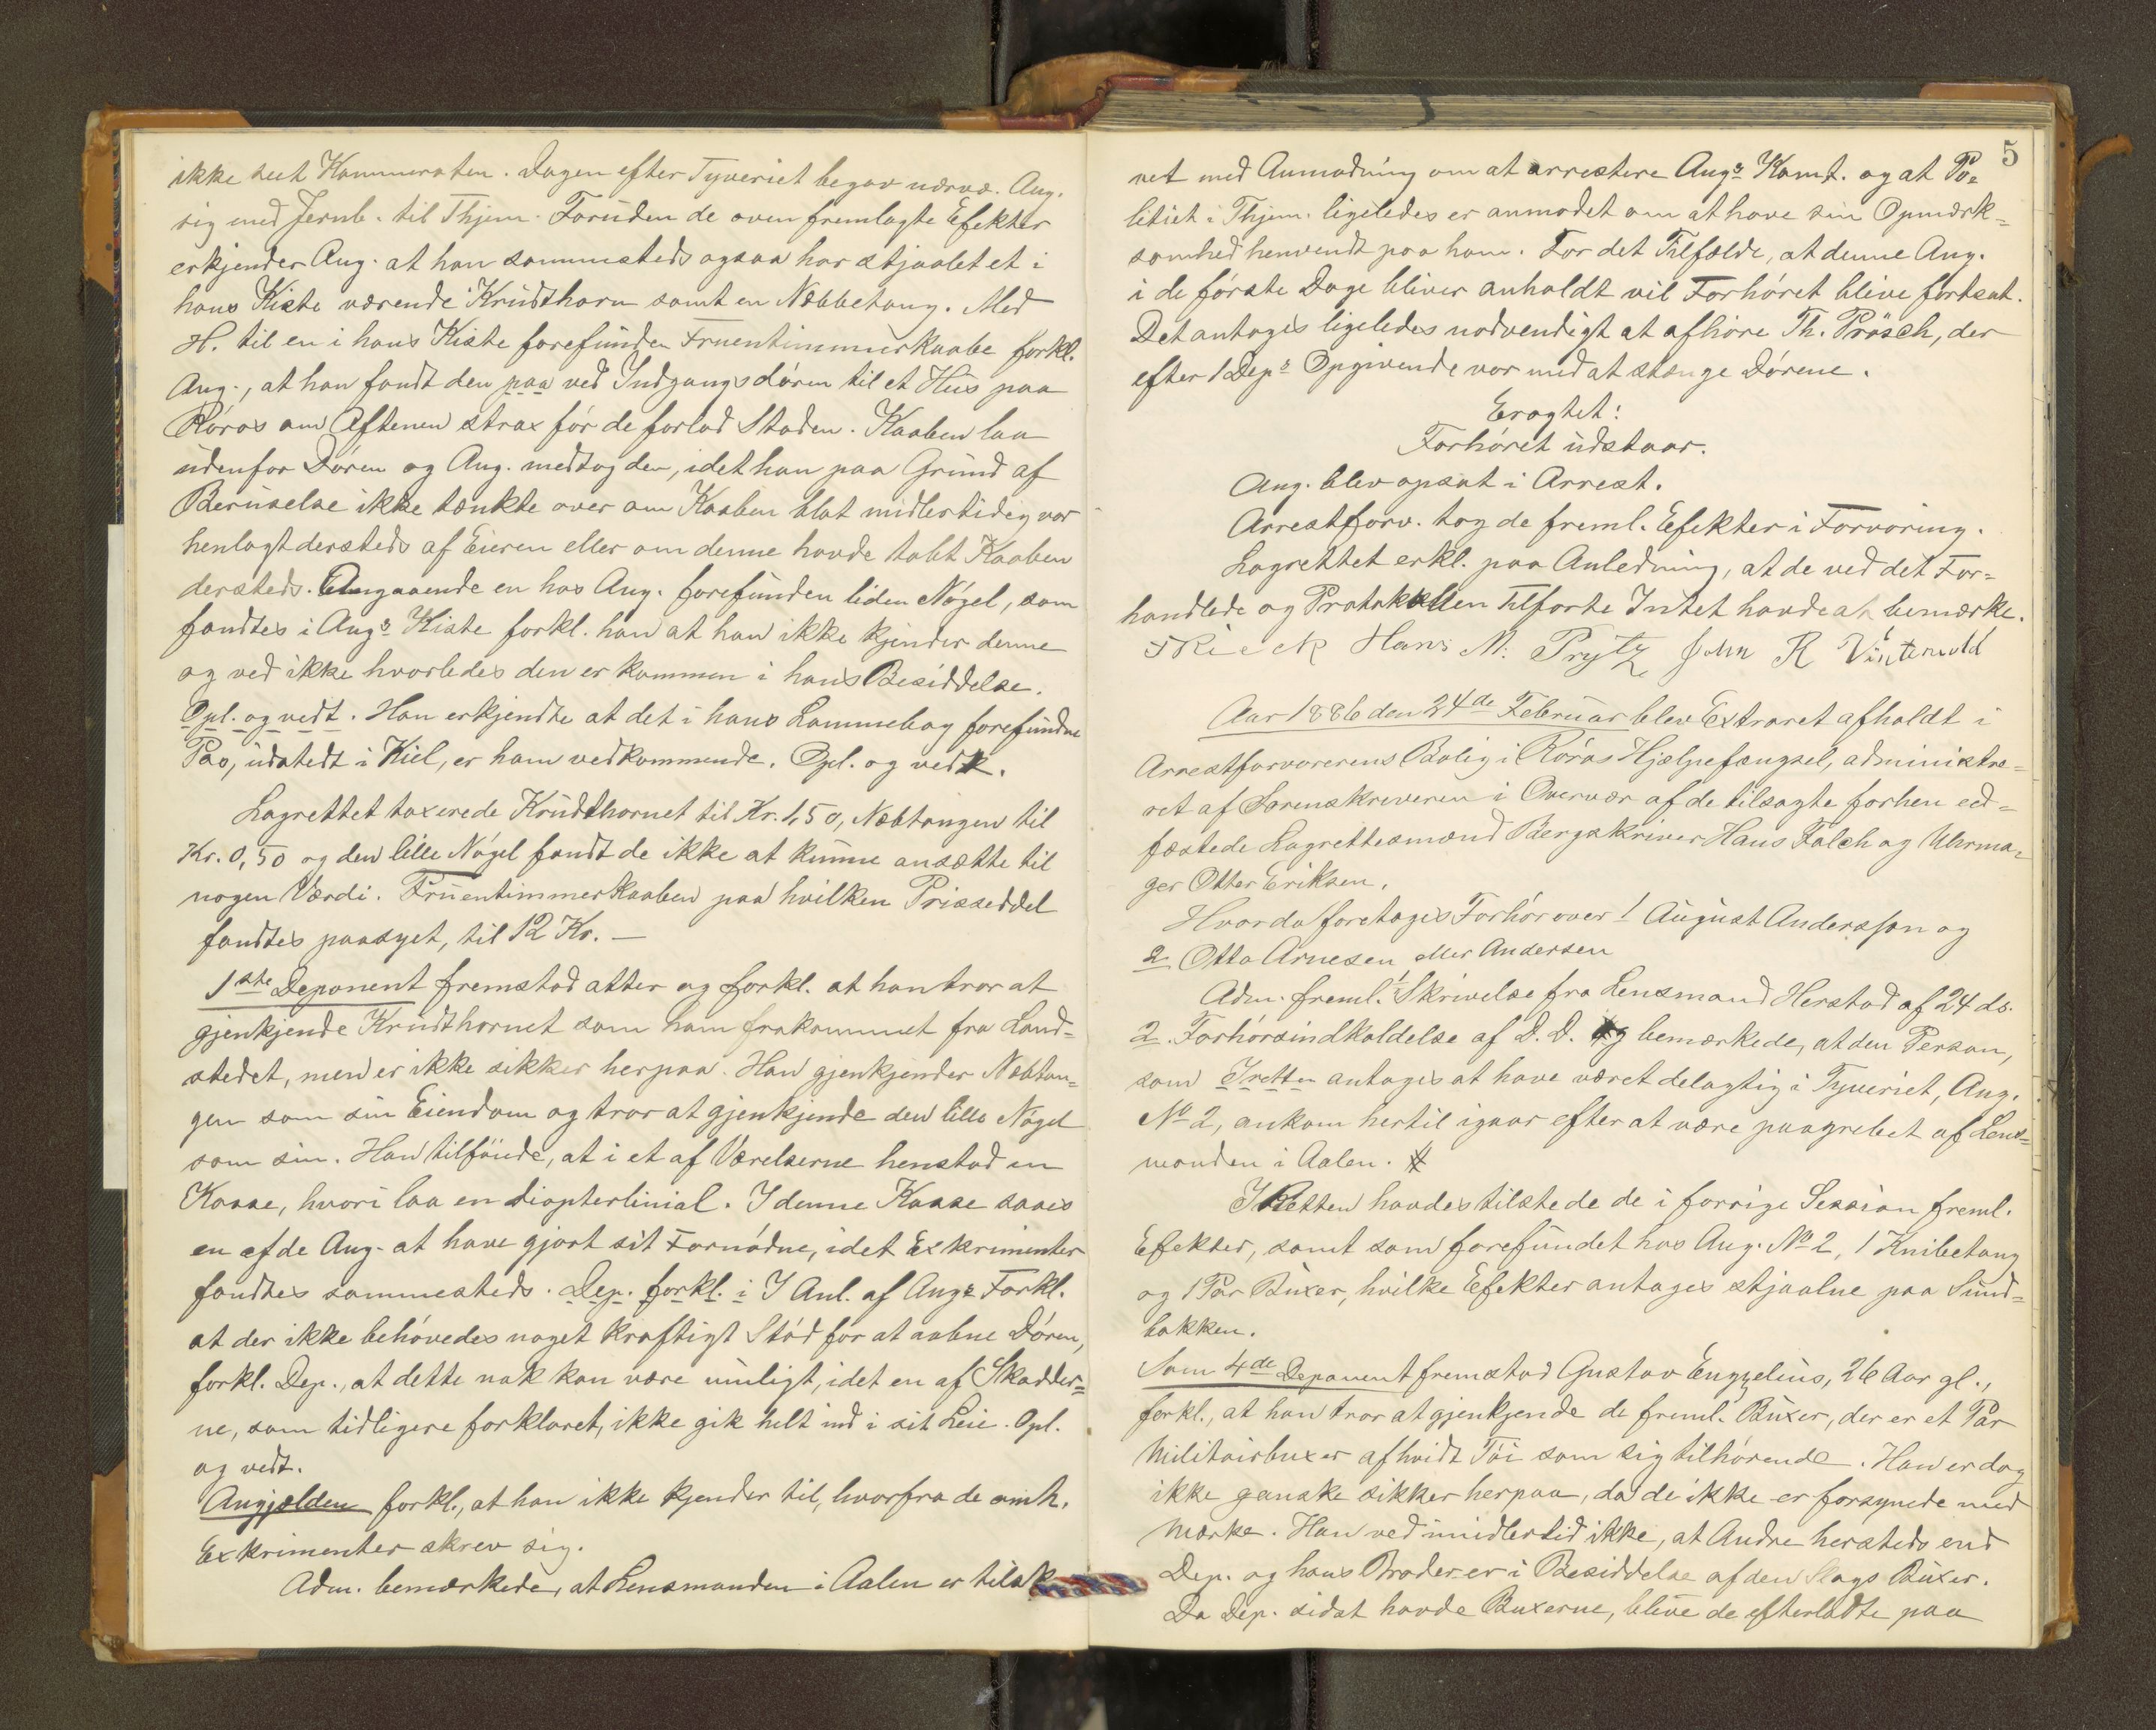 ikke seet Kammeraten. Dagen efter Tyveriet begav nærvæ. Ang.
sig med Jernb. til Thjem. Foruden de oven fremlagte Efekter
erkjender Ang. at han sammesteds ogsaa har stjaalet et i
hans Kiste værende Krudthorn samt en Næbbetang. Med
H. til en i hans Kiste forefunden Fruentimmerkaabe forkl.
Ang., at han fandt den paa ved Indgangsdøren til et Hus paa
Røros om Aftenen strax før de forlod Staden. Kaaben laa
udenfor Døren og Ang. medtog den, idet han paa Grund af
Beruselse ikke tænkte over om Kaaben blot midlertidig var
henlagt dersteds af Eieren eller om denne havde tabt Kaaben
dersteds. Angaaende en hos Ang. forefunden liden Nøgel, som
fandtes i Angs Kiste forkl. han at han ikke kjender denne
og ved ikke hvorledes den er kommen i hans Besiddelse.
Opl. og vedt. Han erkjendte at det i hans Lommebog forefundne
Pas, udstedt i Kiel, er ham vedkommende. Opl. og vedt.
Lagrettet taxerede Krudthornet til Kr. 1,50, Næbtangen til
Kr. 0,50 og den lille Nøgel fandt de ikke at kunne ansætte til
nogen Værdi. Fruentimmerkaaben paa hvilken Prisseddel
fandtes paasyet, til 12 Kr. —
1ste Deponent fremstod atter og forkl. at han tror at
gjenkjende Krudthornet som ham frakommet fra Land-
stedet, men er ikke sikker herpaa. Han gjenkjender Næbtan-
gen som sin Eiendom og tror at gjenkjende den lille Nøgel
som sin. Han tilføiede, at i et af Værelserne henstod en
Kasse, hvori laa en Diopterlinial. I denne Kasse saaes
en af de Ang. at have gjort sit Fornødne, idet Exkrimenter
fandtes sammesteds. Dep. forkl. i I Anl. af Angs Forkl.
at der ikke behøvedes noget kraftigt Stød for at aabne Døren,
forkl. Dep., at dette nok kan være muligt, idet en af Skodder-
ne, som tidligere forklaret, ikke gik helt ind i sit Leie. Opl.
og vedt.
Angjælden forkl., at han ikke kjender til, hvorfra de omh.
Exkrimenter skrev sig.
Adm. bemærkede, at Lensmanden i Aalen er tilsk
5
vet med Anmodning om at arrestere Angs Kamt. og at Po-
litiet i Thjem. ligeledes er anmodet om at have sin Opmærk-
somhed henvendt paa ham. For det Tilfælde, at denne Ang.
i de første Dage bliver anholdt vil Forhøret blive fortsat.
Det antages ligeledes nødvendigt at afhøre Th. Prøsch, der
efter 1 Deps Opgivende var med at stænge Dørene.
Eragtet:
Forhøret udstaar.
Ang. blev opsat i Arrest.
Arrestforv. tog de freml. Efekter i Forvaring.
Lagrettet erkl. paa Anledning, at de ved det For-
handlede og Protokollen Tilførte Intet havde at bemærke.
Hans M. Prytz John R Vintervold
Aar 1886 den 24de Februar blev Extraret afholdt i
Arrestforvarerens Bolig i Røros Hjælpefængsel, administre-
ret af Sorenskriveren i Overvær af de tilsagte forhen eed-
fæstede Lagrettesmænd Bergskriver Hans Falch og Uhrma-
ger Otter Eriksen.
Hvorda foretoges Forhør over 1 August Andersson og
2 Otto Arnesen eller Andersen
Adm. freml. 1 Skrivelse fra Lensmand Herstad af 24 ds.
2 Forhørsindkaldelse af D. D. og bemærkede, at den Person,
som I retten antages at have været delagtig i Tyveriet, Ang.
No 2, ankom hertil igaar efter at være paagrebet af Lens-
manden i Aalen.
I Retten havdes tilstede de i forrige Session freml.
Efekter, samt som forefundet hos Ang. No 2, 1 Knibetang
og 1 Par Buxer, hvilke Efekter antages stjaalne paa Sund-
bakken.
Som 4de Deponent fremstod Gustav Engzelius, 26 Aar gl.,
forkl., at han tror at gjenkjende de freml. Buxer, der er et Par
Militairbuxer af hvidt Tøi som sig tilhørende. Han er dog
ikke ganske sikker herpaa, da de ikke er forsynede med
Mærke. Han ved imidlertid ikke, at Andre hersteds end
Dep. og hans Broder er i Besiddelse af den Slags Buxer.
Da Dep. sidst havde Buxerne, bleve de efterladte paa